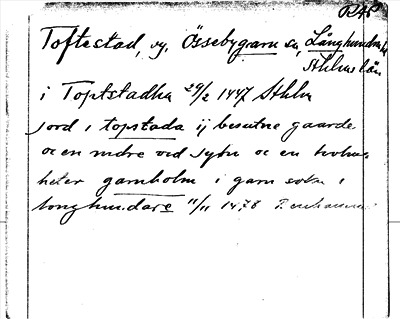 RAP
Toftestad, vg, Össebygarn sn, Långhundra hd
Sthlms län
i Toptstadha 29/2 1447 Sthlm
jord i topstada ij besutne gaarde
oc en mdre ved syhn oc en holm
heter garnholm i garn sokn i
longhundare 11/11 1478